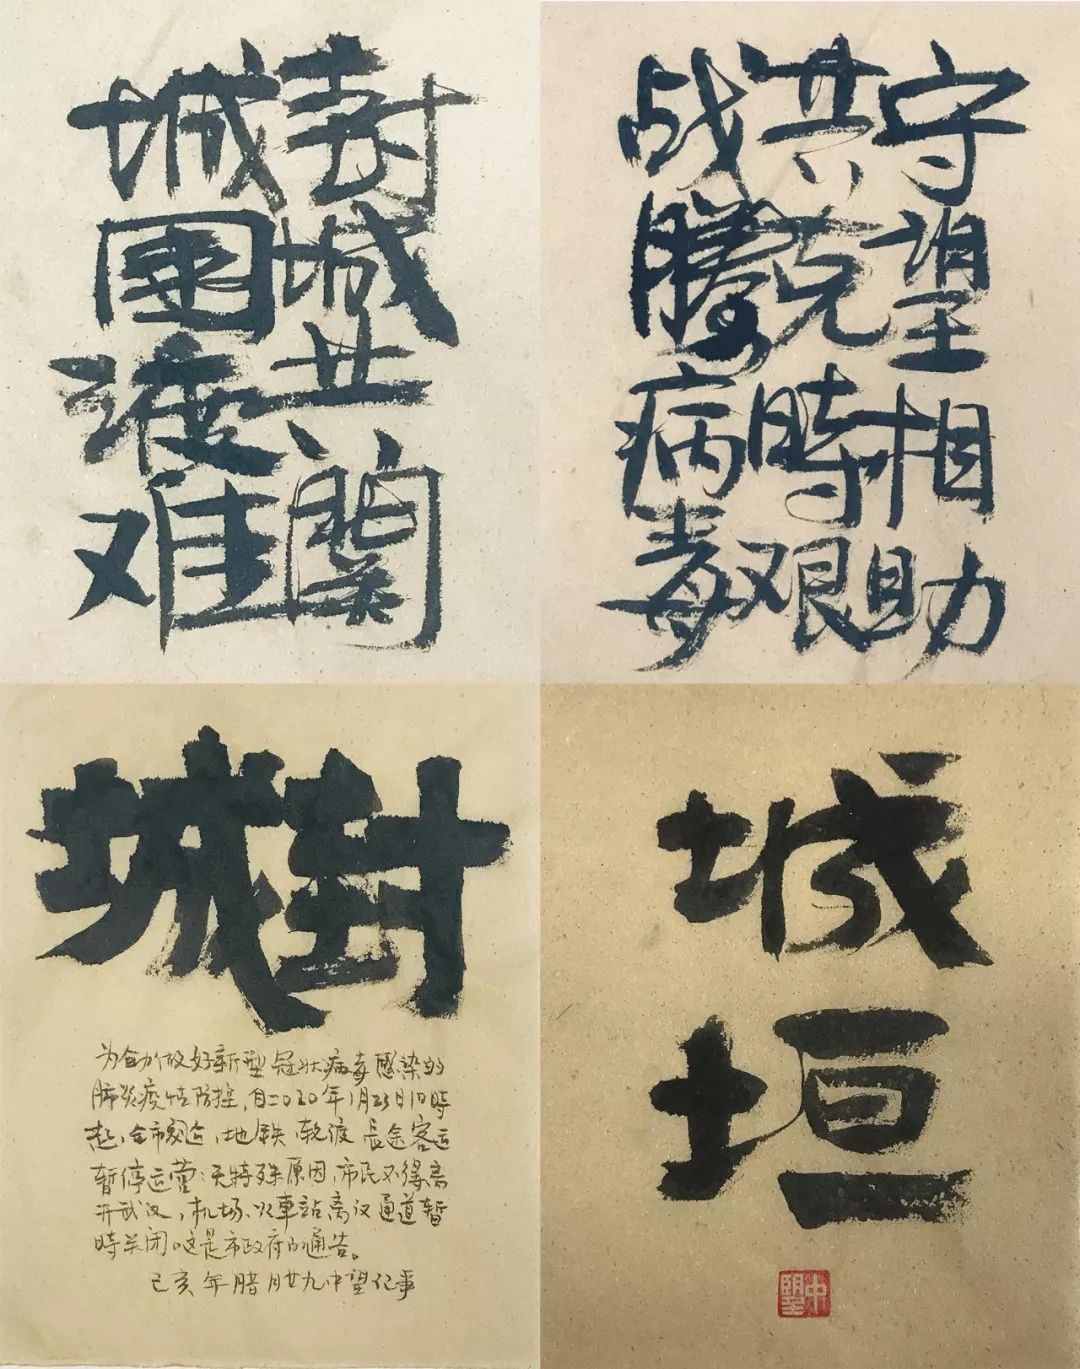 封城共闗
城團渡难
守望相助
共克時艰
战勝病毒
封城
为全力做好新型冠状病毒感染的
肺炎疫情防控,自二0二0年1月23日10時
起,全市公交,地铁,轮渡,長途客运
暂停运营;无特殊原因,市民不得离
开武汉,机场、火車站离汉通道暂
時关闭。这是市政府的通告。
己亥年腊月廿九中望纪事
城垣
中望